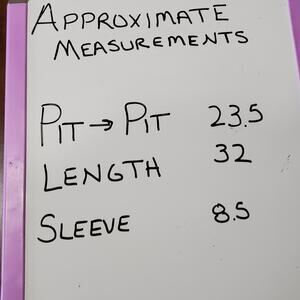 APPROXIMATE
MEASUREMENTS
PIT → PIT 23.5
LENGTH 32
SLEEVE 8.5